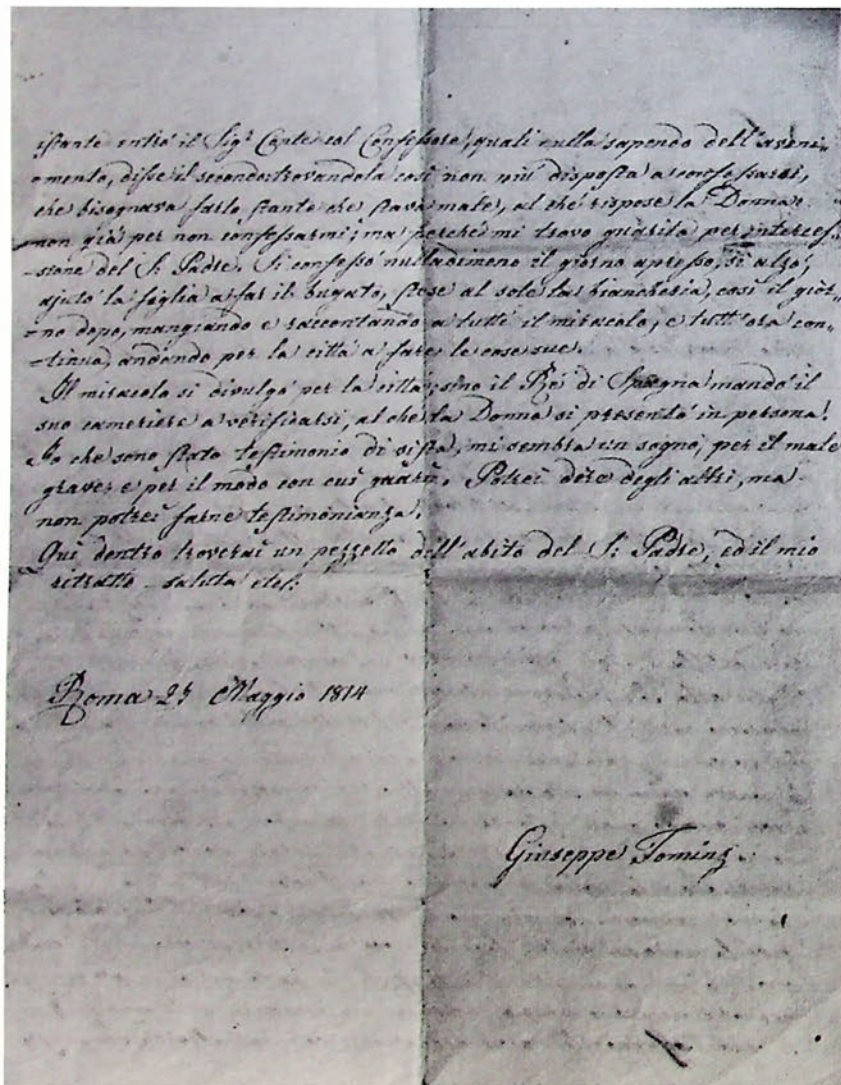 istante entrò il Sigr Conte col Confessore, quali nulla sapendo dell'aveni„
„mento, disse il secondo trovandola così non più disposta a confessarsi,
che bisognava farlo stante che stava male, al che rispose la Donna
non già per non confessarmi; ma perche mi trovo guarita per interces=
=sione del S: Padre. Si confessò nulladimeno il giorno apresso, si alzò,
ajutò la figlia a far il bugato, stese al sole la biancheria, così il gior=
=no dopo, mangiando e raccontando a tutti il miracolo, e tutt'ora con„
=tinua, andando per la città a fare le cose sue.
Il miracolo si divulgò per la città; sino il Rè di Spagna mandò il
suo cameriere a verificarsi, al che la Donna si presentò in persona!
Io che sono stato testimonio di vista, mi sembra un sogno, per il male
grave, e per il modo con cui guarì. Potrei dire degli altri, ma
non potrei farne testimonianza.
Qui dentro troverai un pezzetto dell'abito del S: Padre, ed il mio
ritratto - saluta
Roma 25 Maggio 1814
Giuseppe Tominz